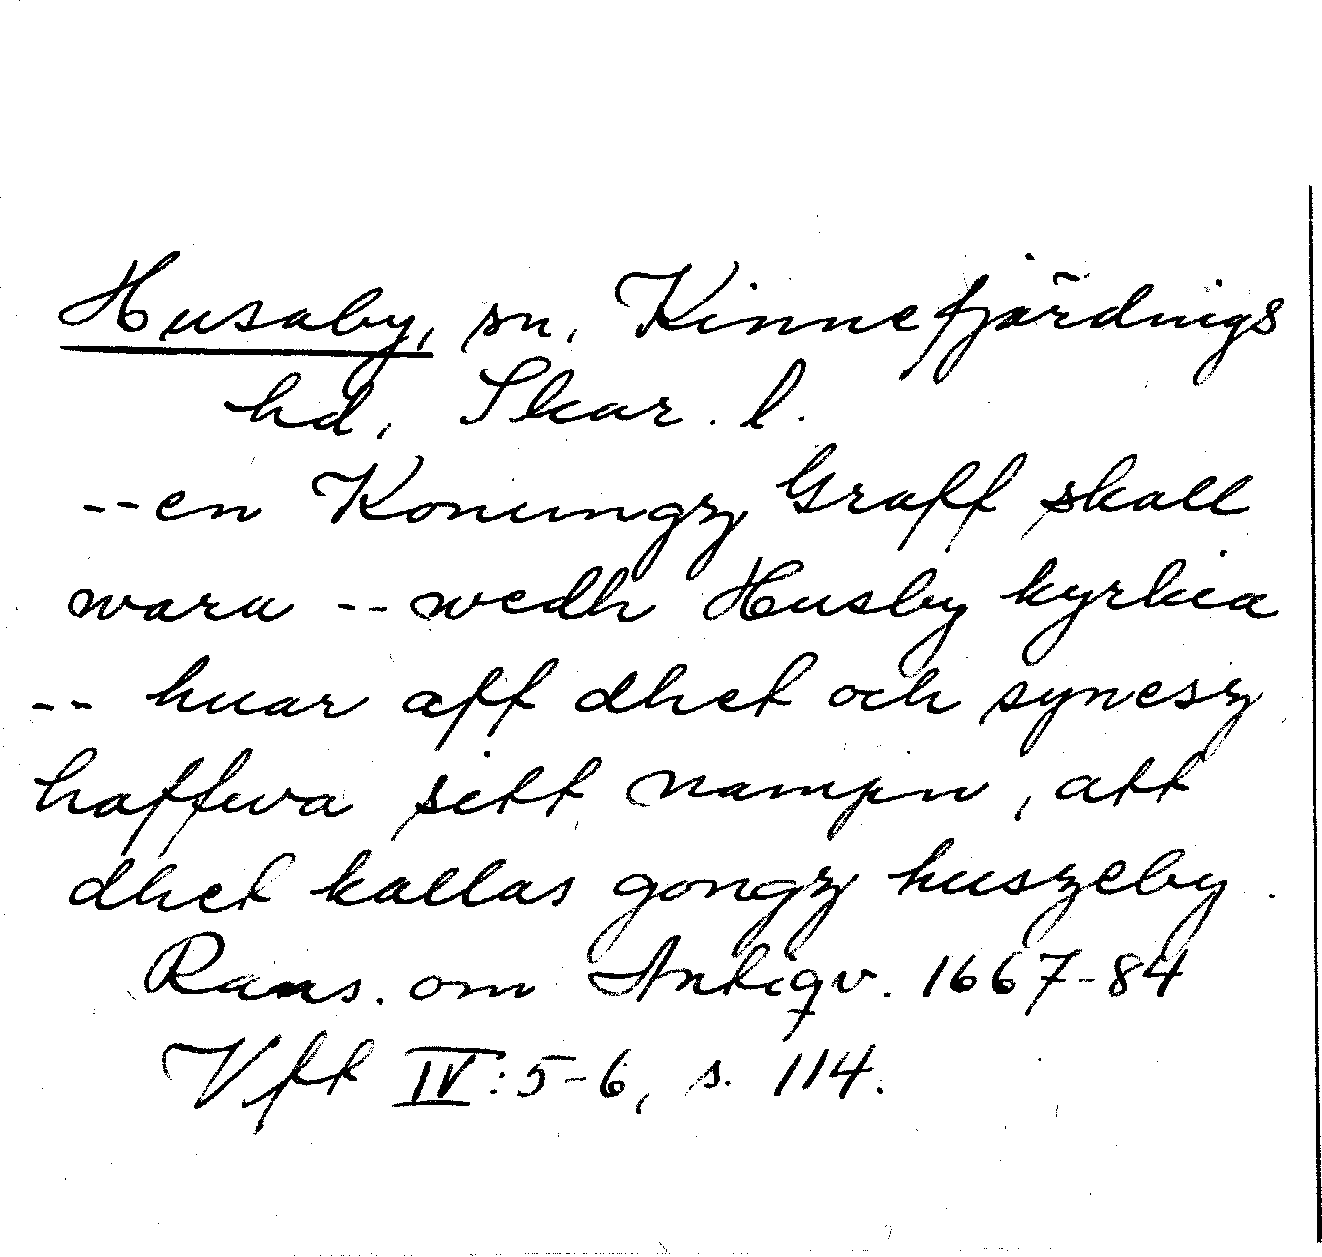 Husaby, sn, Kinnefjärdings
hd, Skar. l.
--en Konungz Graff skall
wara -- wedh Husby kyrkia
-- huar aff dhet och synesz
haffwa sitt nampn, att
dhet kallas gongz huszeby.
Rans. om Antiqv. 1667-84
Vfft IV:5-6, s. 114.